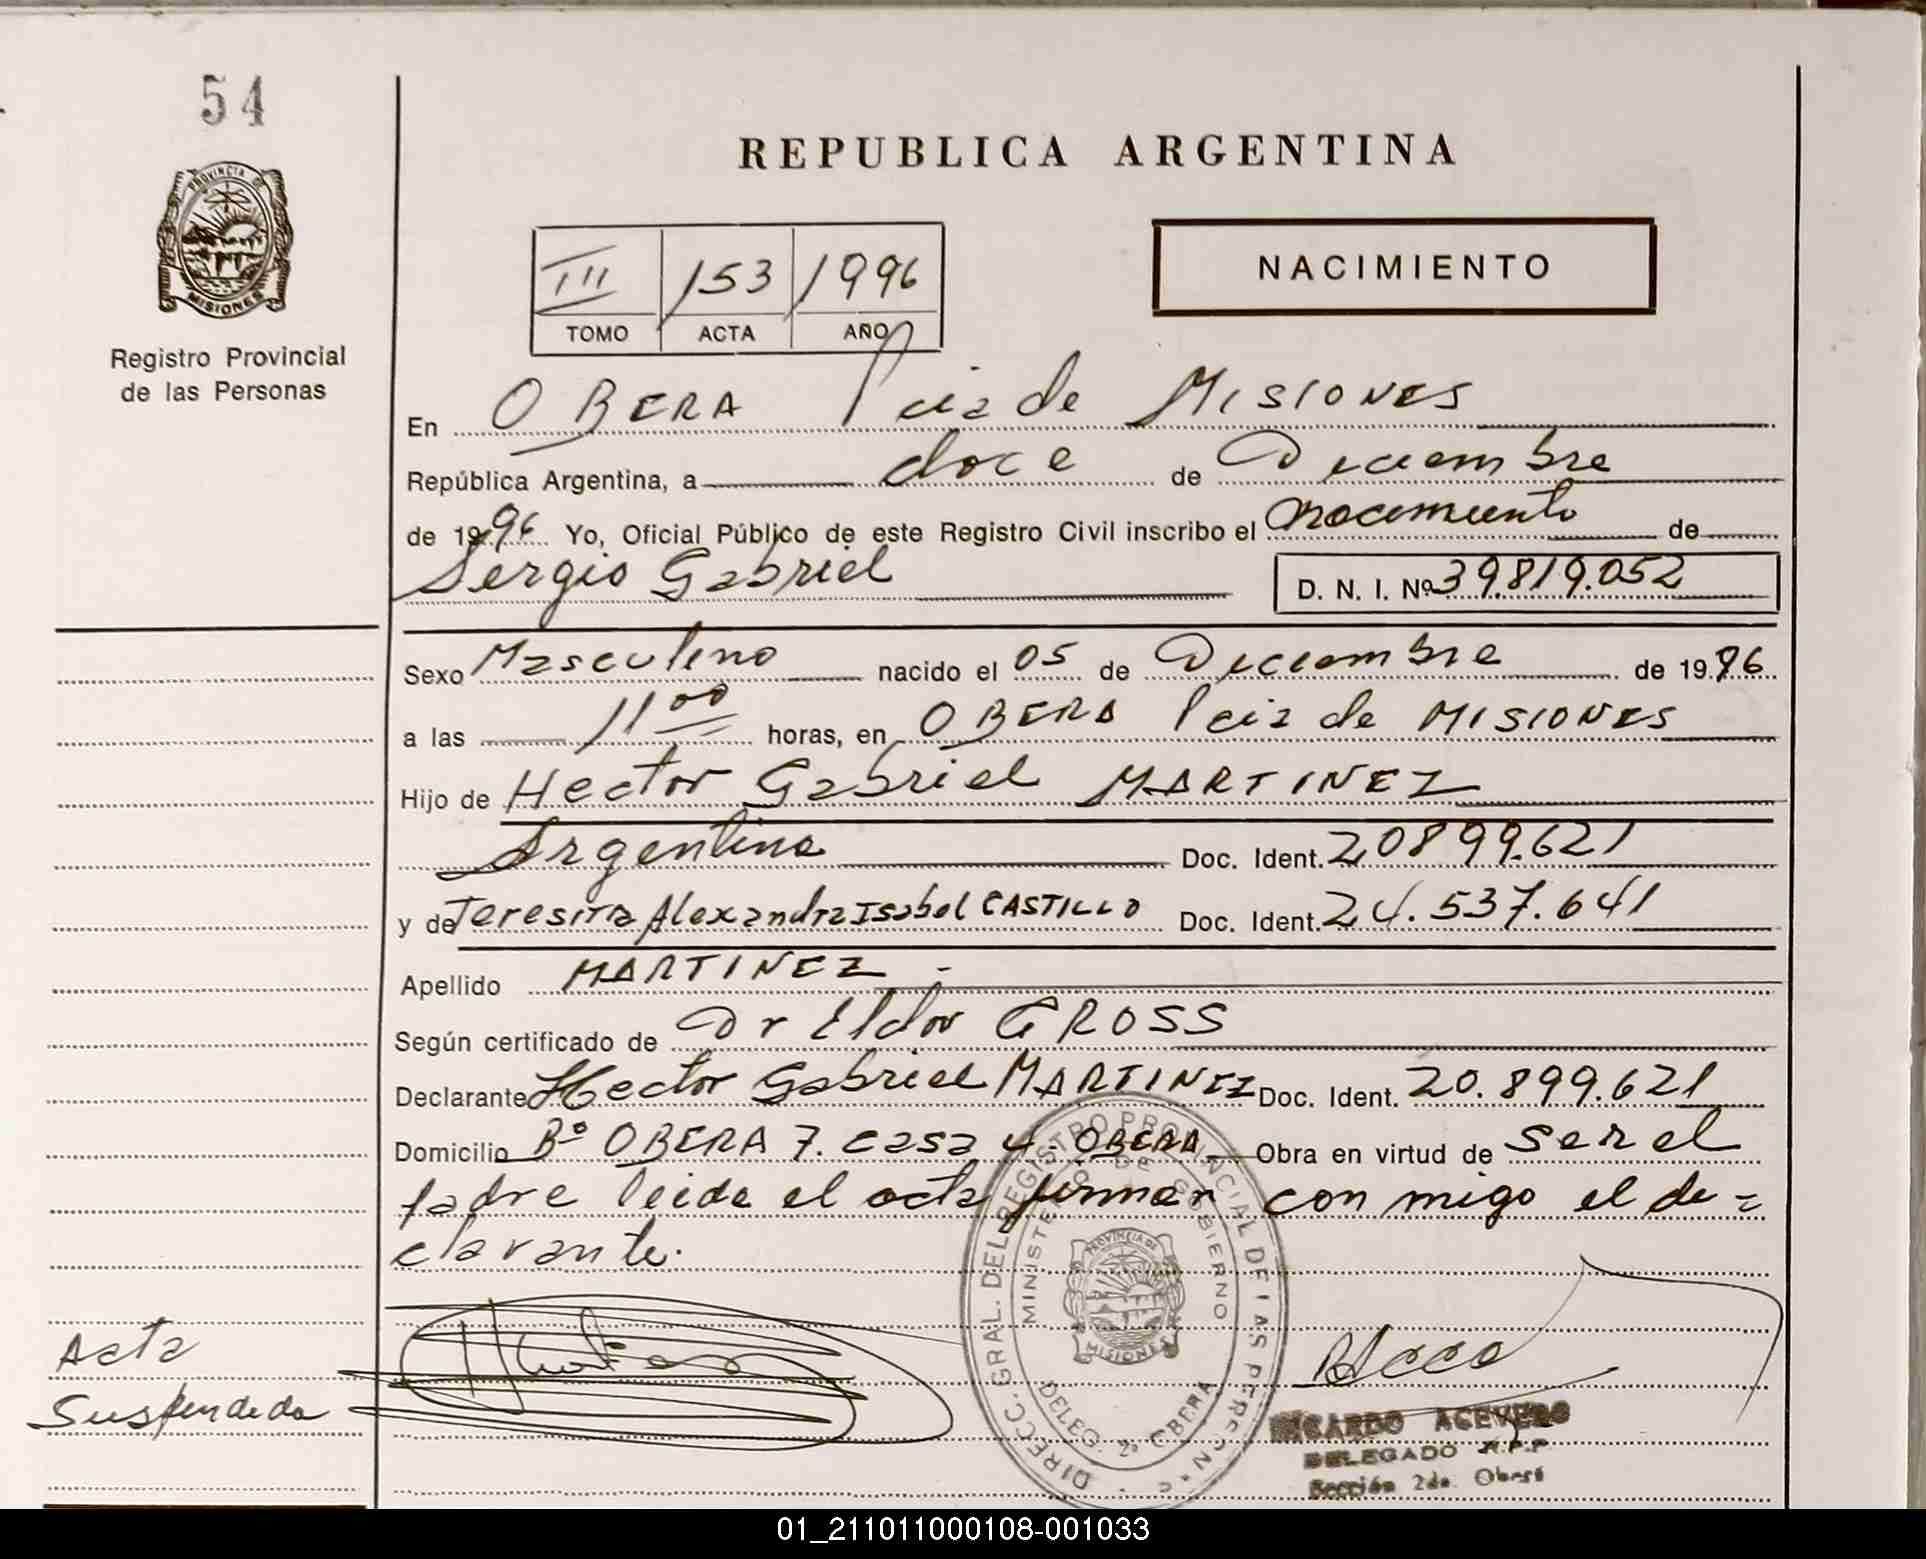 54
REPUBLICA ARGENTINA
PROVINCIA DE
MISIONES
Registro Provincial
de las Personas
III 153 1996
TOMO ACTA AÑO
NACIMIENTO
En OBERA Pcia de MISIONES
República Argentina, a doce de Diciembre
de 1996 Yo, Oficial Público de este Registro Civil inscribo el nacimiento de
Sergio Gabriel D. N. I. Nº 39.819.052
Sexo Masculino nacido el 05 de Diciembre de 1996
a las 11 00 horas, en OBERA Pcia de MISIONES
Hijo de Hector Gabriel MARTINEZ
Argentina Doc. Ident. 20899.621
y de Teresita Alexandra Isabel CASTILLO Doc. Ident. 24.537.641
Apellido MARTINEZ -
Según certificado de Dr Eldor GROSS
Declarante Hector Gabriel MARTINEZ Doc. Ident. 20.899.621
Domicilio Bº OBERA 7. casa 4. OBERA Obra en virtud de ser el
padre leida el acta firman con migo el de =
clarante.
DIRECC. GRAL. DEL REGISTRO PROVINCIAL DE LAS PERSON
MINISTERIO DE GOBIERNO
PROVINCIA DE
MISIONES
DELEG. 2ª OBERA
Acta
Suspendida
RICARDO ACEVEDO
DELEGADO R.P.P
Sección 2da. Oberá
01_211011000108-001033